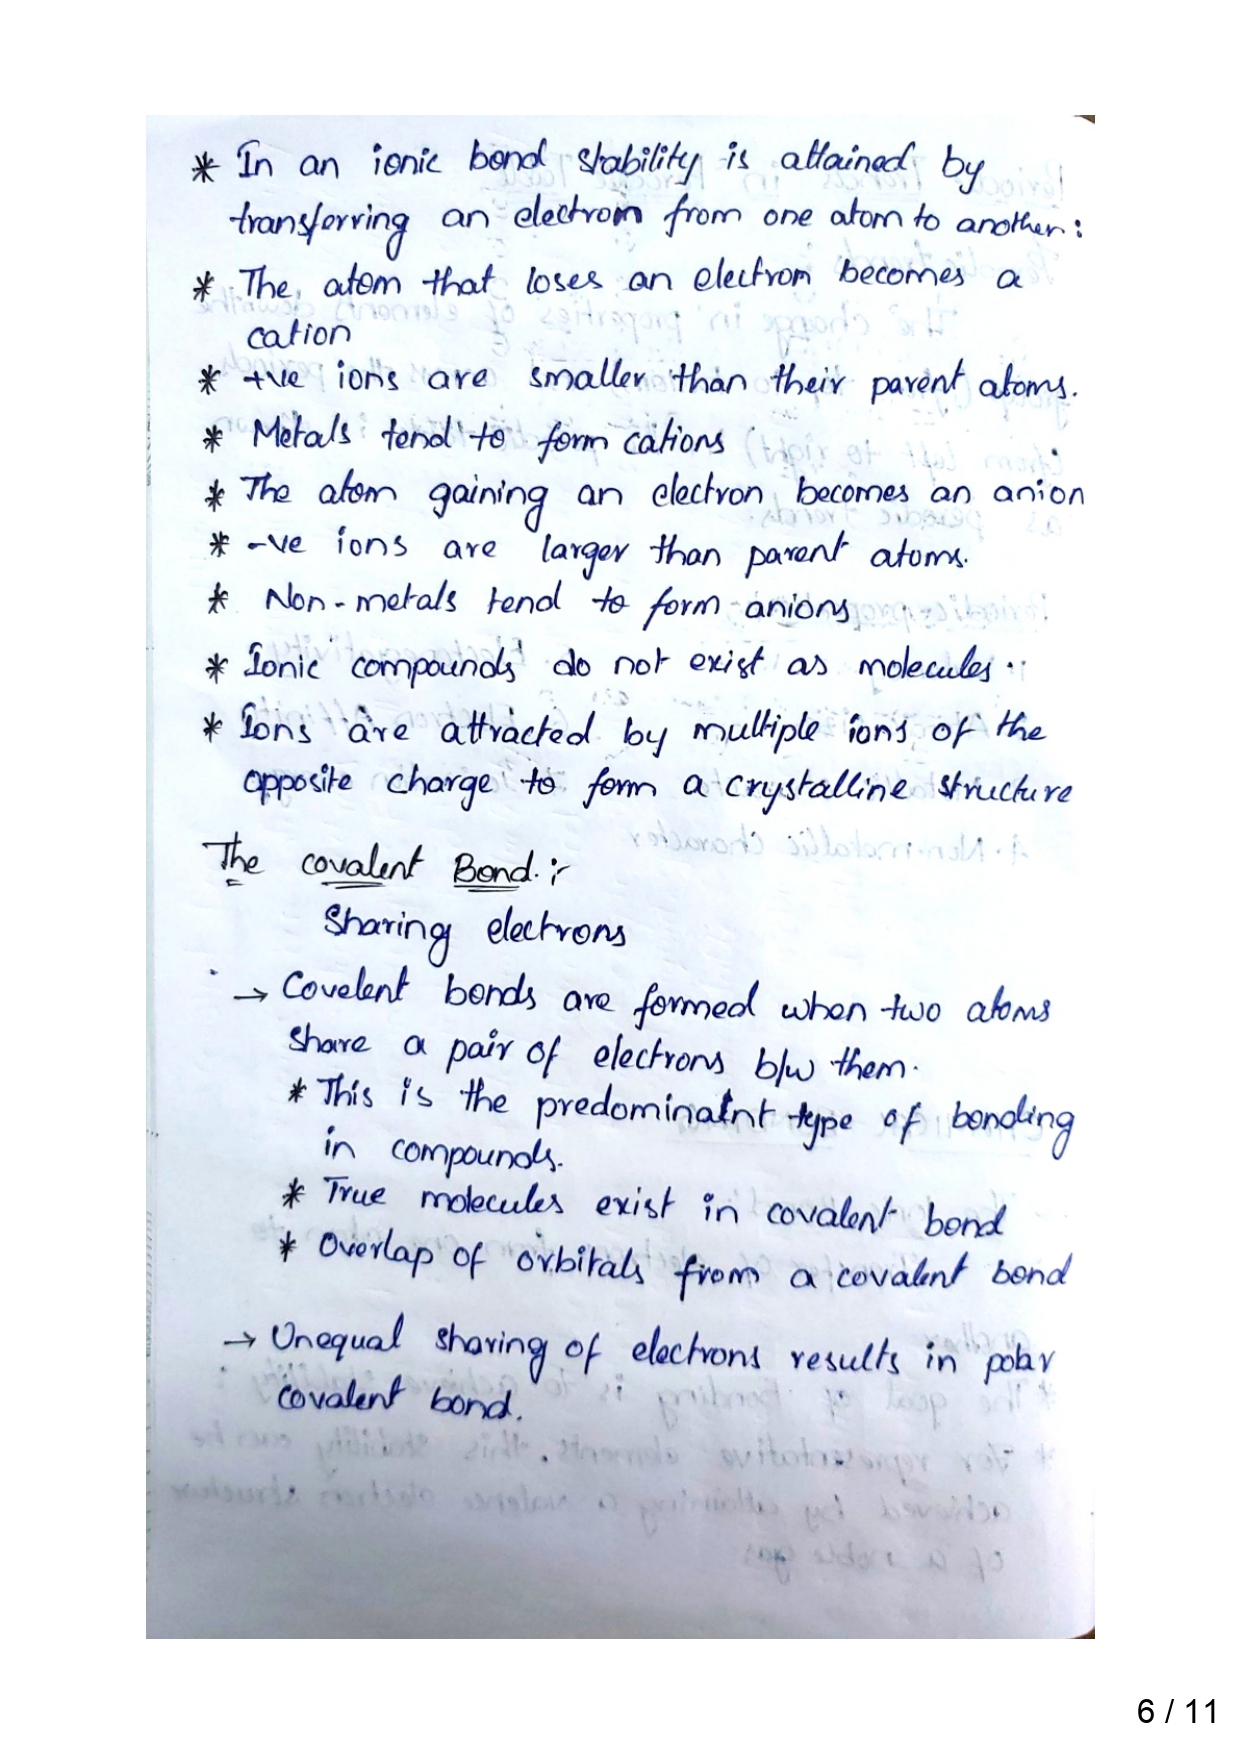 * In an ionic bond stability is attained by
transferring an electron from one atom to another:
* The atom that loses an electron becomes a
cation
* +ve ions are smaller than their parent atoms.
* Metals tend to form cations
* The atom gaining an electron becomes an anion
* -ve ions are larger than parent atoms.
* Non-metals tend to form anions
* Ionic compounds do not exist as molecules.
* Ions are attracted by multiple ions of the
opposite charge to form a crystalline structure
The covalent Bond :-
Sharing electrons
→ Covelent bonds are formed when two atoms
share a pair of electrons b/w them.
* This is the predominatnt type of bonding
in compounds.
* True molecules exist in covalent bond
* Overlap of orbitals from a covalent bond
→ Unequal sharing of electrons results in polar
covalent bond.
6 / 11